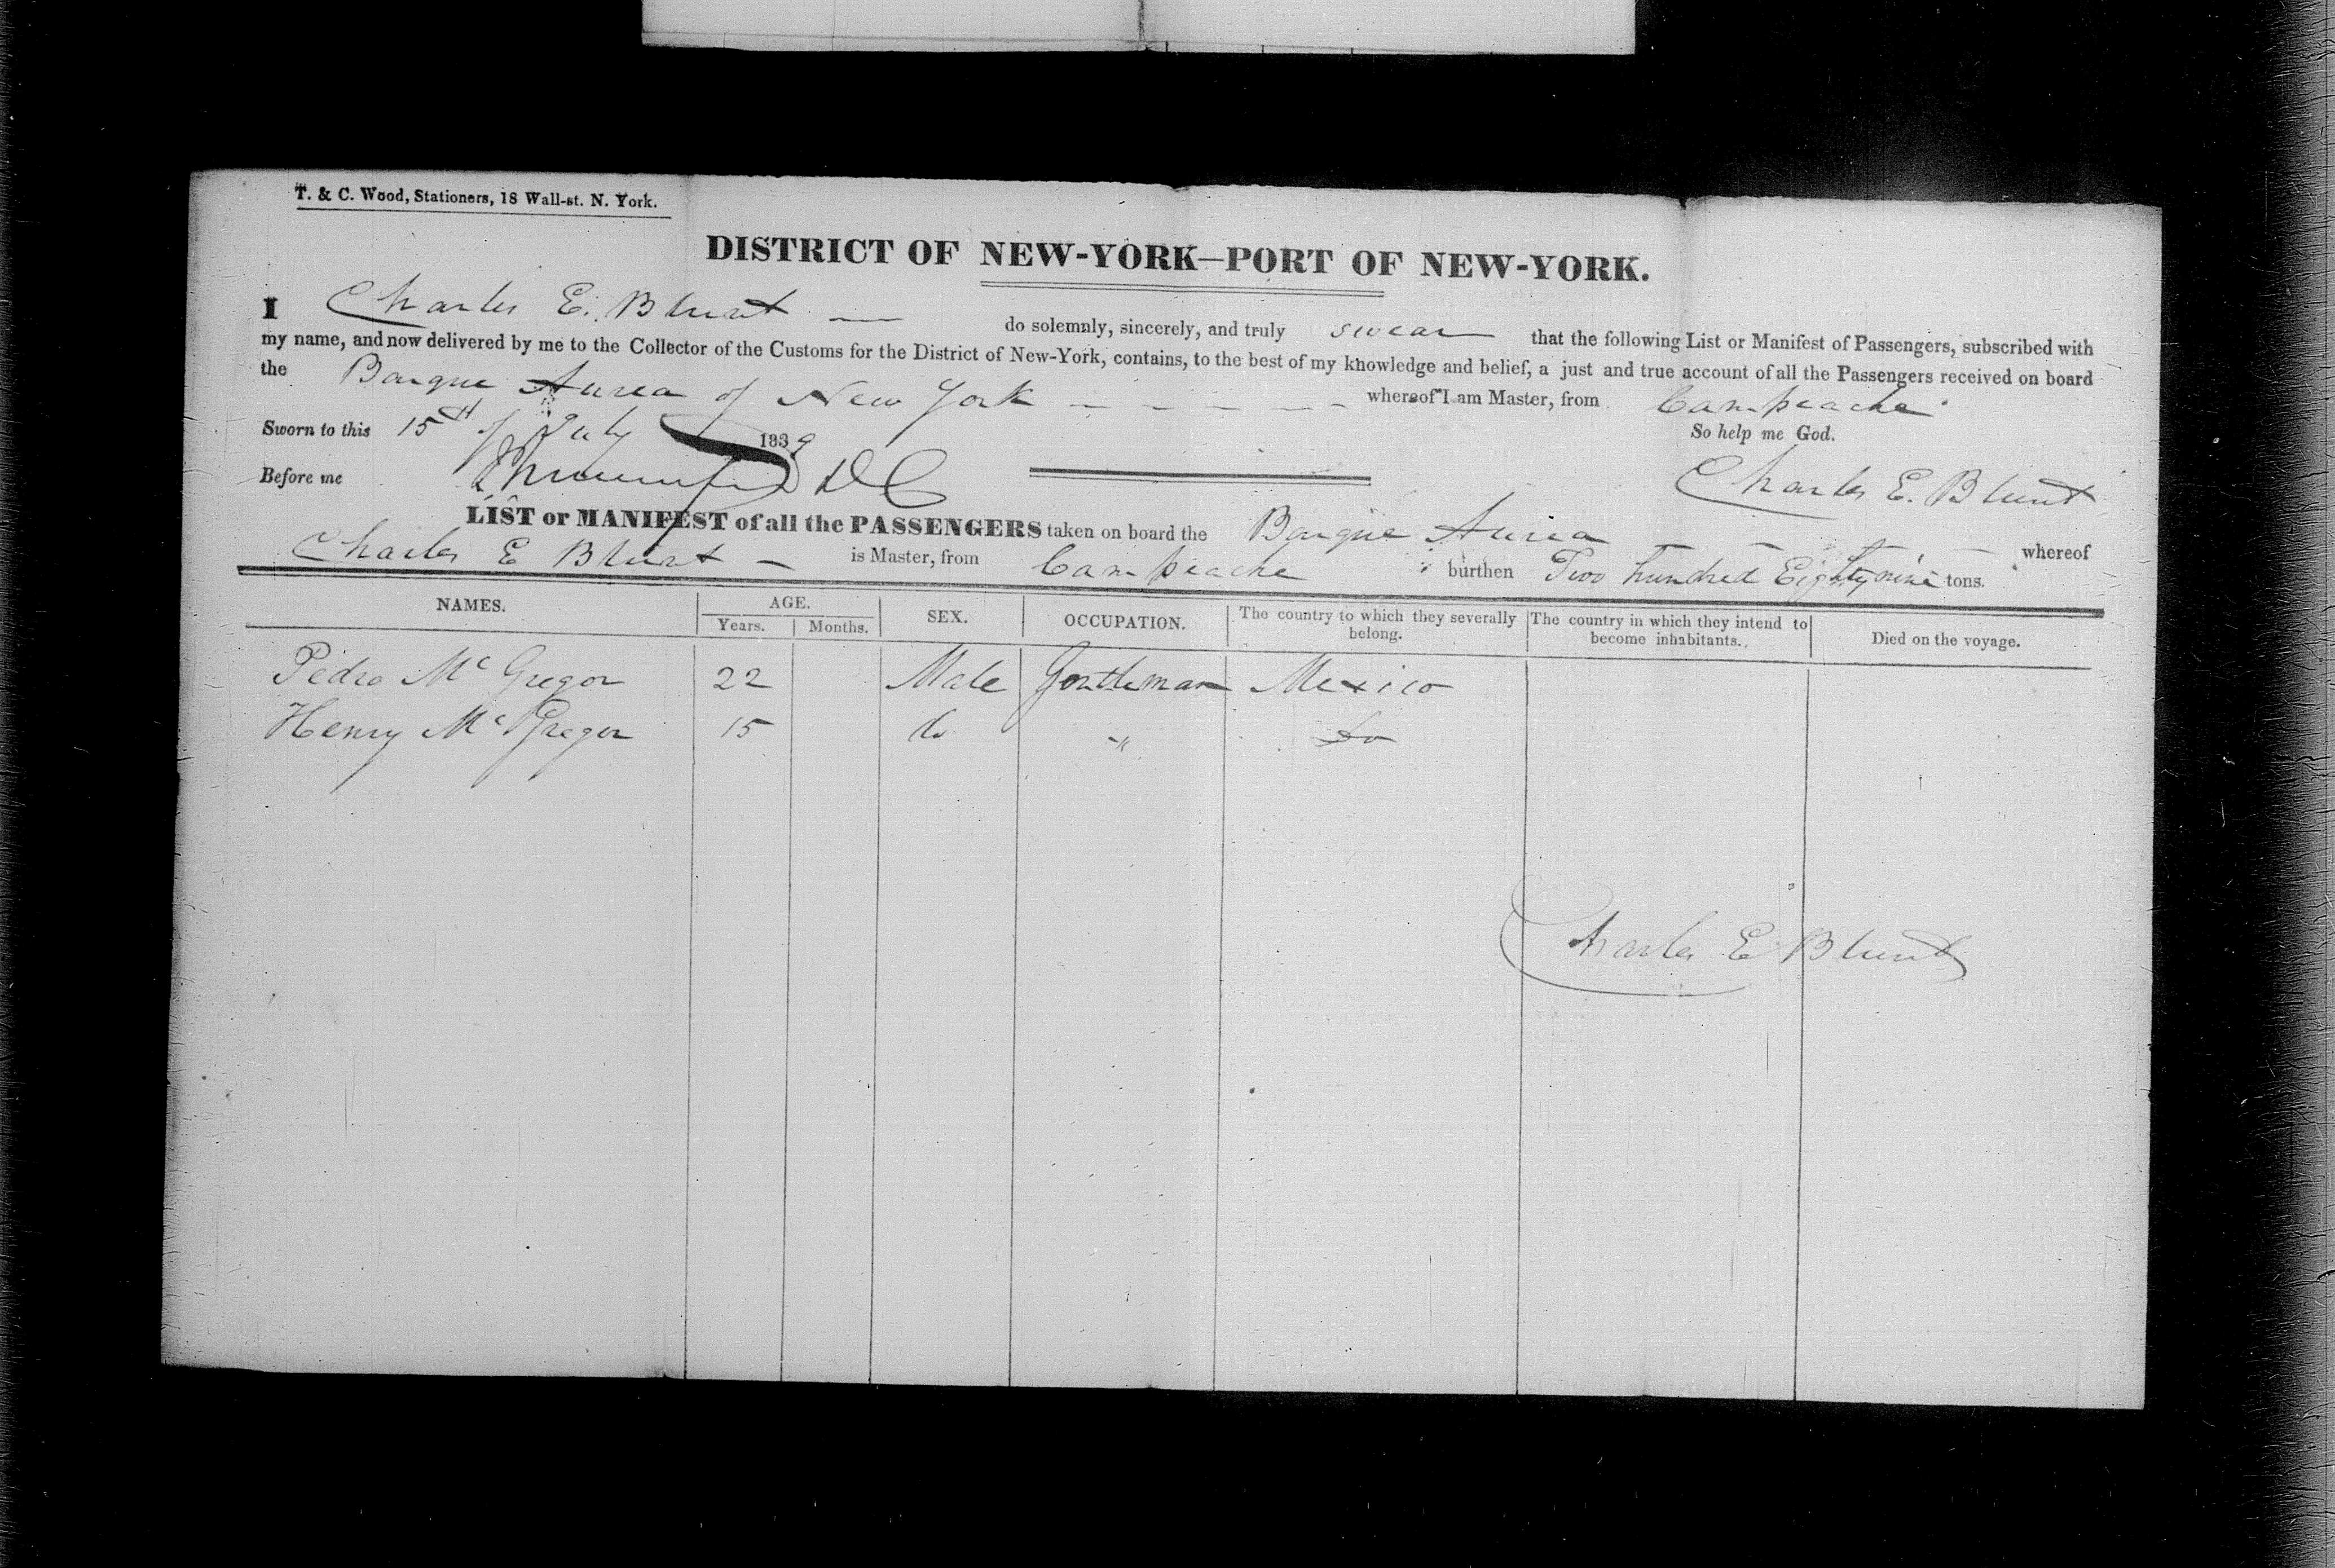 T. & C. Wood, Stationers, 18 Wall-st. N. York.
DISTRICT OF NEW-YORK—PORT OF NEW-YORK.
I Charles E. Blunt — do solemnly, sincerely, and truly swear that the following List or Manifest of Passengers, subscribed with
my name, and now delivered by me to the Collector of the Customs for the District of New-York, contains, to the best of my knowledge and belief, a just and true account of all the Passengers received on board
the Barque Aurea of New York — — — — — whereof I am Master, from Campeache
Sworn to this 15th of July 1839 So help me God.
Before me DC Charles E. Blunt
LIST or MANIFEST of all the PASSENGERS taken on board the Barque Aurea — — — — whereof
Charles E Blunt — is Master, from Campeache burthen Two hundred Eighty nine tons.
NAMES. AGE. Years. Months. SEX. OCCUPATION. The country to which they severally belong. The country in which they intend to become inhabitants. Died on the voyage.
Pedro Mc Gregor 22 Male Gentleman Mexico
Henry Mc Gregor 15 do " do
Charles E Blunt